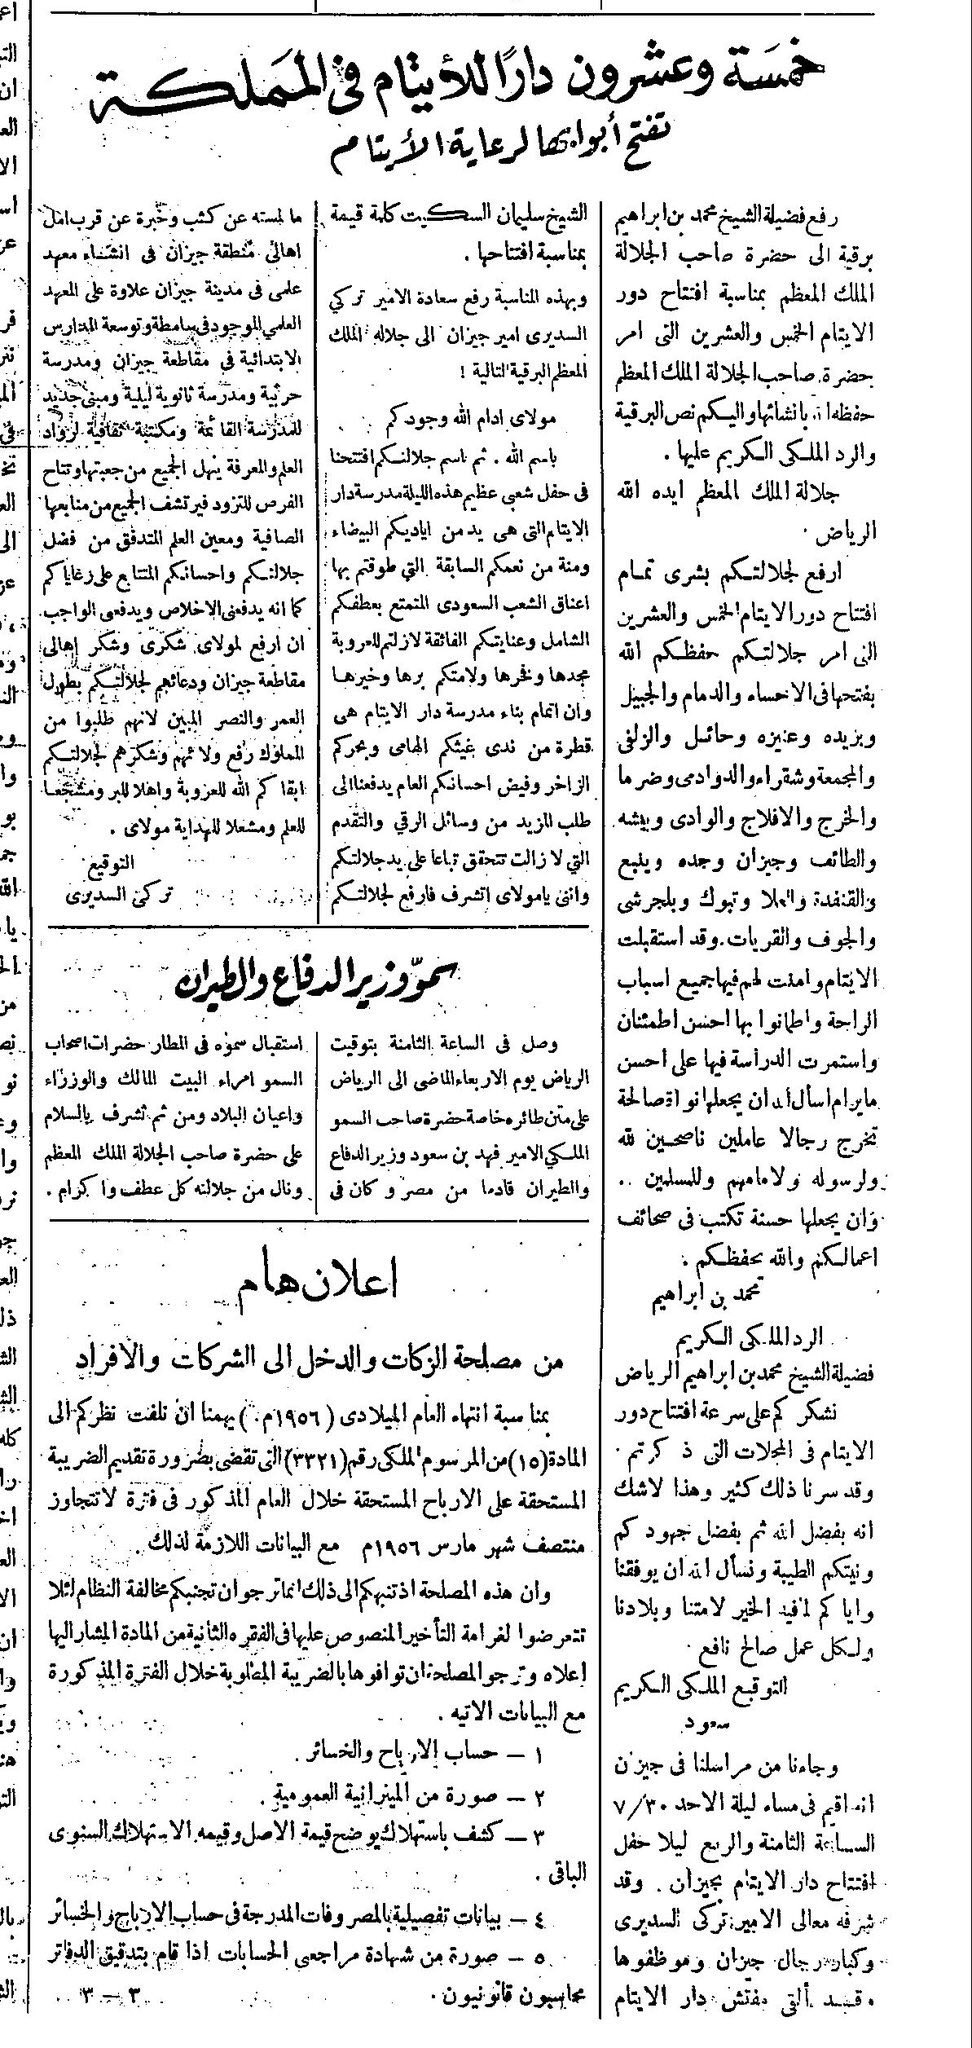 خمسة وعشرون دارًا للأيتام فى المملكة
تفتح أبوابها لرعاية الأيتام
رفع فضيلة الشيخ محمد بن ابراهيم
برقية الى حضرة صاحب الجلالة
الملك المعظم بمناسبة افتتاح دور
الايتام الخمس والعشرين التى امر
حضرة صاحب الجلالة الملك المعظم
حفظه الله بانشائها واليكم نص البرقية
والرد الملكى الكريم عليها .
جلالة الملك المعظم ايده الله
الرياض .
ارفع لجلالتكم بشرى تمام
افتتاح دور الايتام الخمس والعشرين
التى امر جلالتكم حفظكم الله
بفتحها فى الاحساء والدمام والجبيل
وبريده وعنيزه وحائل والزلفى
والمجمعة وشقراء والدوادمى وضرما
والخرج والافلاج والوادى وبيشه
والطائف وجيزان وجده وينبع
والقنفدة والعلا وتبوك وبلجرشى
والجوف والقريات . وقد استقبلت
الايتام وامنت لهم فيها جميع اسباب
الراحة واطمانوا بها احسن اطمئنان
واستمرت الدراسة فيها على احسن
مايرام اسأل الله ان يجعلها نواة صالحة
تخرج رجالا عاملين ناصحين لله
ولرسوله ولامامهم وللمسلمين ..
وان يجعلها حسنة تكتب فى صحائف
اعمالكم والله يحفظكم .
محمد بن ابراهيم
الرد الملكى الكريم
فضيلة الشيخ محمد بن ابراهيم الرياض
نشكركم على سرعة افتتاح دور
الايتام فى المحلات التى ذكرتم .
وقد سرنا ذلك كثير وهذا لاشك
انه بفضل الله ثم بفضل جهودكم
ونيتكم الطيبة ونسأل الله ان يوفقنا
واياكم لمافيد الخير لامتنا وبلادنا
ولكل عمل صالح نافع .
التوقيع الملكى الكريم
سعود
وجاءنا من مراسلنا فى جيزان
انه اقيم فى مساء ليلة الاحد ٧/٣٠
الساعة الثامنة والربع ليلا حفل
افتتاح دار الايتام بجيزان . وقد
شرفه معالى الامير تركى السديرى
وكبار رجال جيزان وموظفوها
وقد ألقى مفتش دار الايتام
الشيخ سليمان السكيت كلمة قيمة
بمناسبة افتتاحها .
وبهذه المناسبة رفع سعادة الامير تركي
السديرى امير جيزان الى جلاله الملك
المعظم البرقية التالية !
مولاى ادام الله وجودكم
باسم الله . ثم باسم جلالتكم افتتحنا
فى حفل شعبى عظيم هذه الليلة مدرسة دار
الايتام التى هى يد من اياديكم البيضاء
ومنة من نعمكم السابقة التي طوقتم بها
اعناق الشعب السعودى المتمتع بعطفكم
الشامل وعنايتكم الفائقة لازلتم للعروبة
مجدها وفخرها ولامتكم برها وخيرها
وان اتمام بناء مدرسة دار الايتام هى
قطرة من ندى غيثكم الهامى وبحركم
الزاخر وفيض احسانكم العام يدفعنا الى
طلب المزيد من وسائل الرقي والتقدم
التي لا زالت تتحقق تباعا على يد جلالتكم
وانني يامولاى اتشرف فارفع لجلالتكم
ما لمسته عن كثب وخبرة عن قرب امل
اهالى منطقة جيزان فى انشاء معهد
علمى فى مدينة جيزان علاوة على المعهد
العلمي الموجود فى سامطة وتوسعة المدارس
الابتدائية في مقاطعة جيزان ومدرسة
حربية ومدرسة ثانوية ليلية ومبنى جديد
للمدرسة القائمة ومكتبة ثقافية لرواد
العلم والمعرفة ينهل الجميع من جعبتها وتتاح
الفرص للتزود فيرتشف الجميع من منابعها
الصافية ومعين العلم المتدفق من فضل
جلالتكم واحسانكم المتتابع على رغاياكم
كما انه يدفعنى الاخلاص ويدفعى الواجب
ان ارفع لمولاى شكرى وشكر اهالى
مقاطعة جيزان ودعائهم لجلالتكم بطول
العمر والنصر المبين لانهم طلبوا من
المملوك رفع ولائهم وشكرهم لجلالتكم
ابقاكم الله للعروبة واهلا للبر ومشجعا
للعلم ومشعلا للهداية مولاى .
التوقيع
تركى السديرى
سموّ وزير الدفاع والطيران
وصل فى الساعة الثامنة بتوقيت
الرياض يوم الاربعاء الماضى الى الرياض
على متن طائره خاصة حضرة صاحب السمو
الملكي الامير فهد بن سعود وزير الدفاع
والطيران قادما من مصر وكان فى
استقبال سموه فى المطار حضرات اصحاب
السمو امراء البيت المالك والوزراء
واعيان البلاد ومن ثم تشرف بالسلام
على حضرة صاحب الجلالة الملك المعظم
ونال من جلالته كل عطف واكرام .
اعلان هام
من مصلحة الزكات والدخل الى الشركات والافراد
بمناسبة انتهاء العام الميلادى (١٩٥٦م) يهمنا ان نلفت نظركم الى
المادة (١٥) من المرسوم الملكى رقم (٣٣٢١) التى تقضى بضرورة تقديم الضريبة
المستحقة على الارباح المستحقة خلال العام المذكور فى فترة لاتتجاوز
منتصف شهر مارس ١٩٥٦م مع البيانات اللازمة لذلك .
وان هذه المصلحة اذ تنبهكم الى ذلك انما ترجو ان تجنبكم مخالفة النظام لئلا
تتعرضوا لغرامة التأخير المنصوص عليها فى الفقره الثانية من المادة المشار اليها
اعلاه وترجو المصلحة ان توافوها بالضريبة المطلوبة خلال الفترة المذكورة
مع البيانات الاتيه .
١ – حساب الارباح والخسائر .
٢ – صورة من الميزانية العمومية .
٣ – كشف باستهلاك يوضح قيمة الاصل وقيمه الاستهلاك السنوى
الباقى .
٤ – بيانات تفصيلية بالمصروفات المدرجة فى حساب الارباح والخسائر
٥ – صورة من شهادة مراجعى الحسابات اذا قام بتدقيق الدفاتر
محاسبون قانونيون .
٣ – ٣